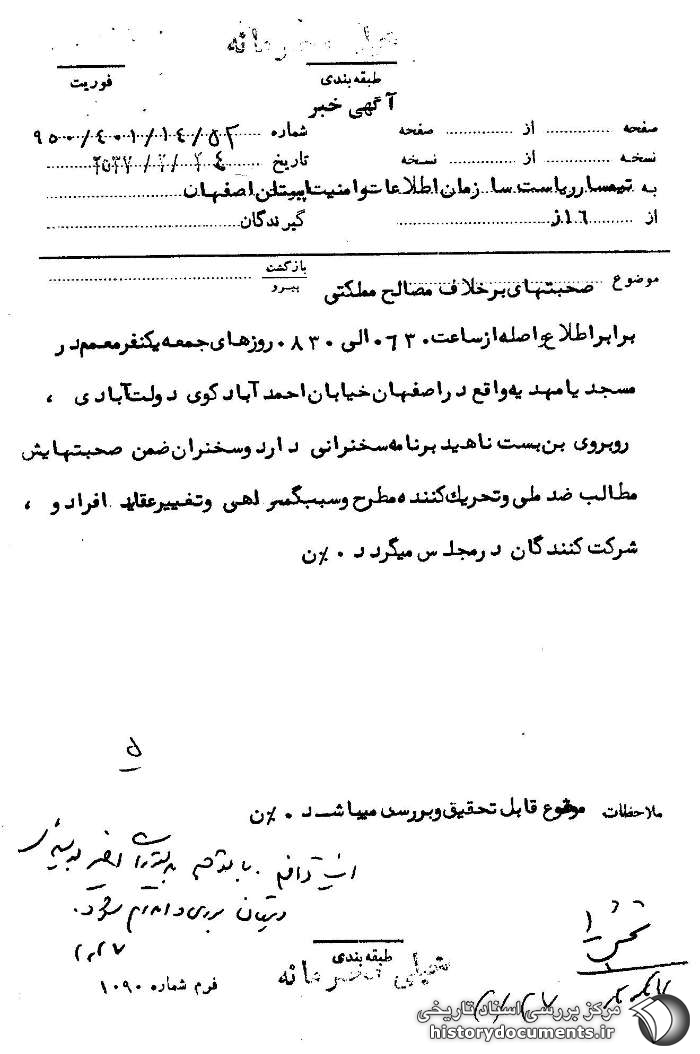 خیلی محرمانه
طبقه‌بندی
فوریت
آگهی خبر
صفحه ............ از ............ صفحه
شماره ۹۵۰۰/٤۰۱/۱٤/۵۲
نسخه ............ از ............ نسخه
تاریخ
به تیمسار ریاست سازمان اطلاعات و امنیت استان اصفهان
از ۱٦از
گیرندگان
موضوع صحبتهای برخلاف مصالح مملکتی
بازگشت
پیرو
برابر اطلاع واصله از ساعت ۰٦۳۰ الی ۰۸۳۰ روزهای جمعه یکنفر معمم در
مسجد یا مهدیه واقع در اصفهان خیابان احمد آباد کوی دولت‌آبادی ،
روبروی بن‌بست ناهید برنامه سخنرانی دارد و سخنران ضمن صحبتهایش
مطالب ضد ملی و تحریک‌کننده مطرح و سبب گمراهی و تغییر عقاید افراد و ،
شرکت کنندگان در مجلس میگردد ۰٪ن
ملاحظات موضوع قابل تحقیق و بررسی میباشد ۰٪ن
طبقه‌بندی
خیلی محرمانه
فرم شماره ۱۰۹۰
مرکز بررسی اسناد تاریخی
historydocuments.ir